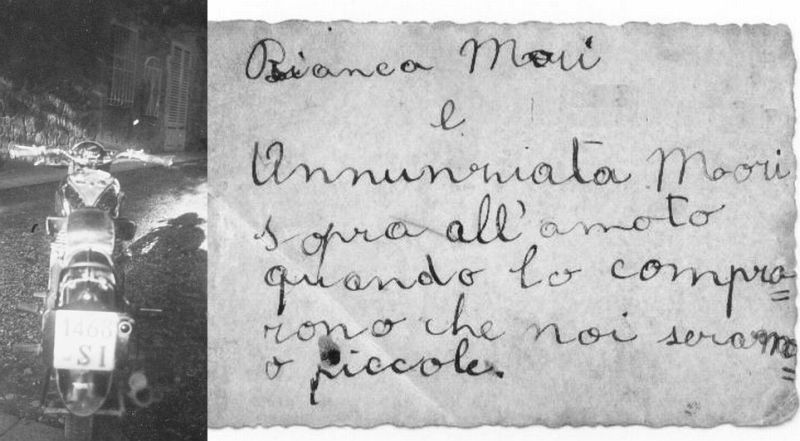 SI
Bianca Mori
e
Annunziata Mori
sopra all'amoto
quando lo compra=
rono che noi seram=
o piccole.